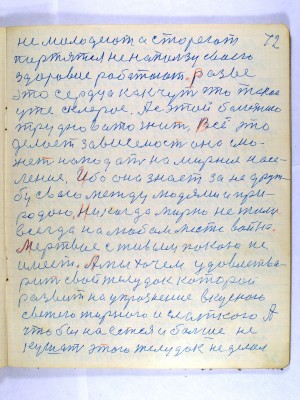 не молодеют а стореют 72
портятся не на пользу своего
здоровие работают. Разве
это сердца как чут что такое
уже склероз. А с этой болезнею
трудно ватожит, Всё это
делает зависемость она мо-
жет нападат на мирное насе-
ление. Ибо она знает за не друж-
бу свою между людями и при-
родою, Никогда мирно не жили
всегда на любом месте война.
Мертвые с живым покою не
имеет. А мы хочем удовлетва-
рит свой желудок которой
развит на упражнение вкусного
светого жирного и сладкого А
что бы наестся и болше не
кушат этого желудок не делал